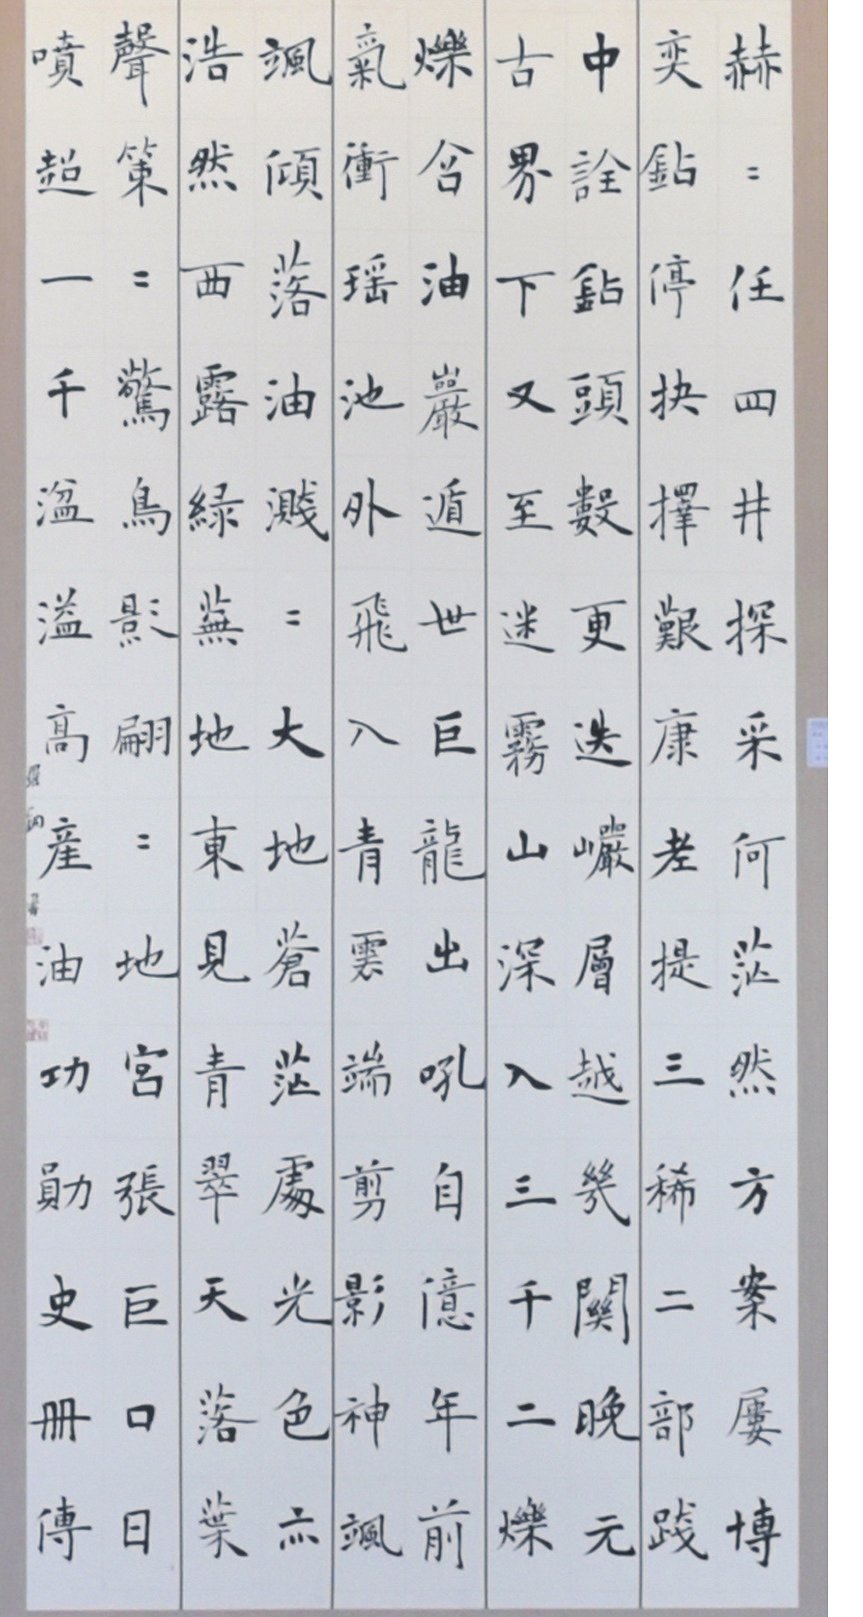 赫=任四井探采何茫然方案屢博
奕鉆停抉擇艱康老提三稀二部踐
中詮鉆頭數更迭巖層越幾關晚元
古界下又至迷霧山深入三千二爍
爍含油巖遁世巨龍出吼自億年前
氣衝瑶池外飛入青雲端剪影神颯
颯傾落油濺=大地蒼茫處光色亦
浩然西露緑蕪地東見青翠天落葉
聲策=驚鳥影翩=地宮張巨口日
噴超一千溢高産油功勛史冊傳